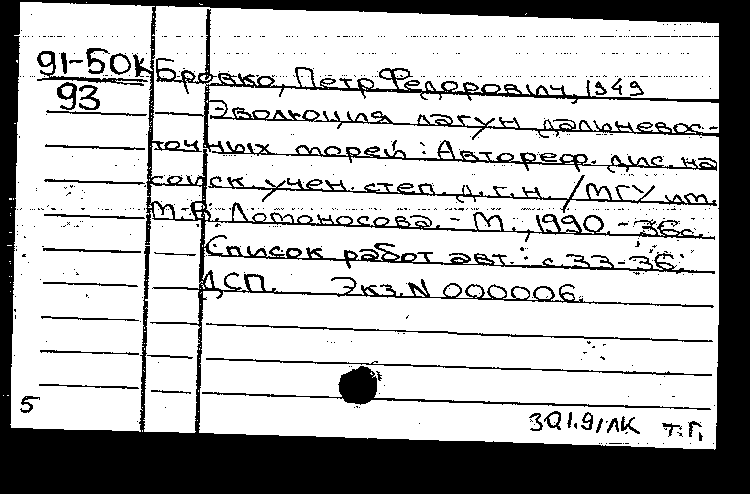 91-5ОК Бровко, Петр Федорович, 1949
93
Эволюция лагун дальневос-
точных морей : Автореф. дис. на
соиск. учен. степ. д.г.н. / МГУ им.
М.В. Ломоносова. - М., 1990. - 36с.
Список работ авт. : с. 33-36.
ДСП. Экз. N 000006.
5
30 1.91 ЛК Т.П.